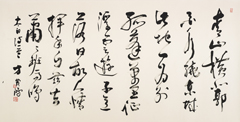 青山横北郭
白水绕东城
此地一为别
孤蓬万里征
浮云游子意
落日故人情
挥手自兹去
萧萧班马鸣